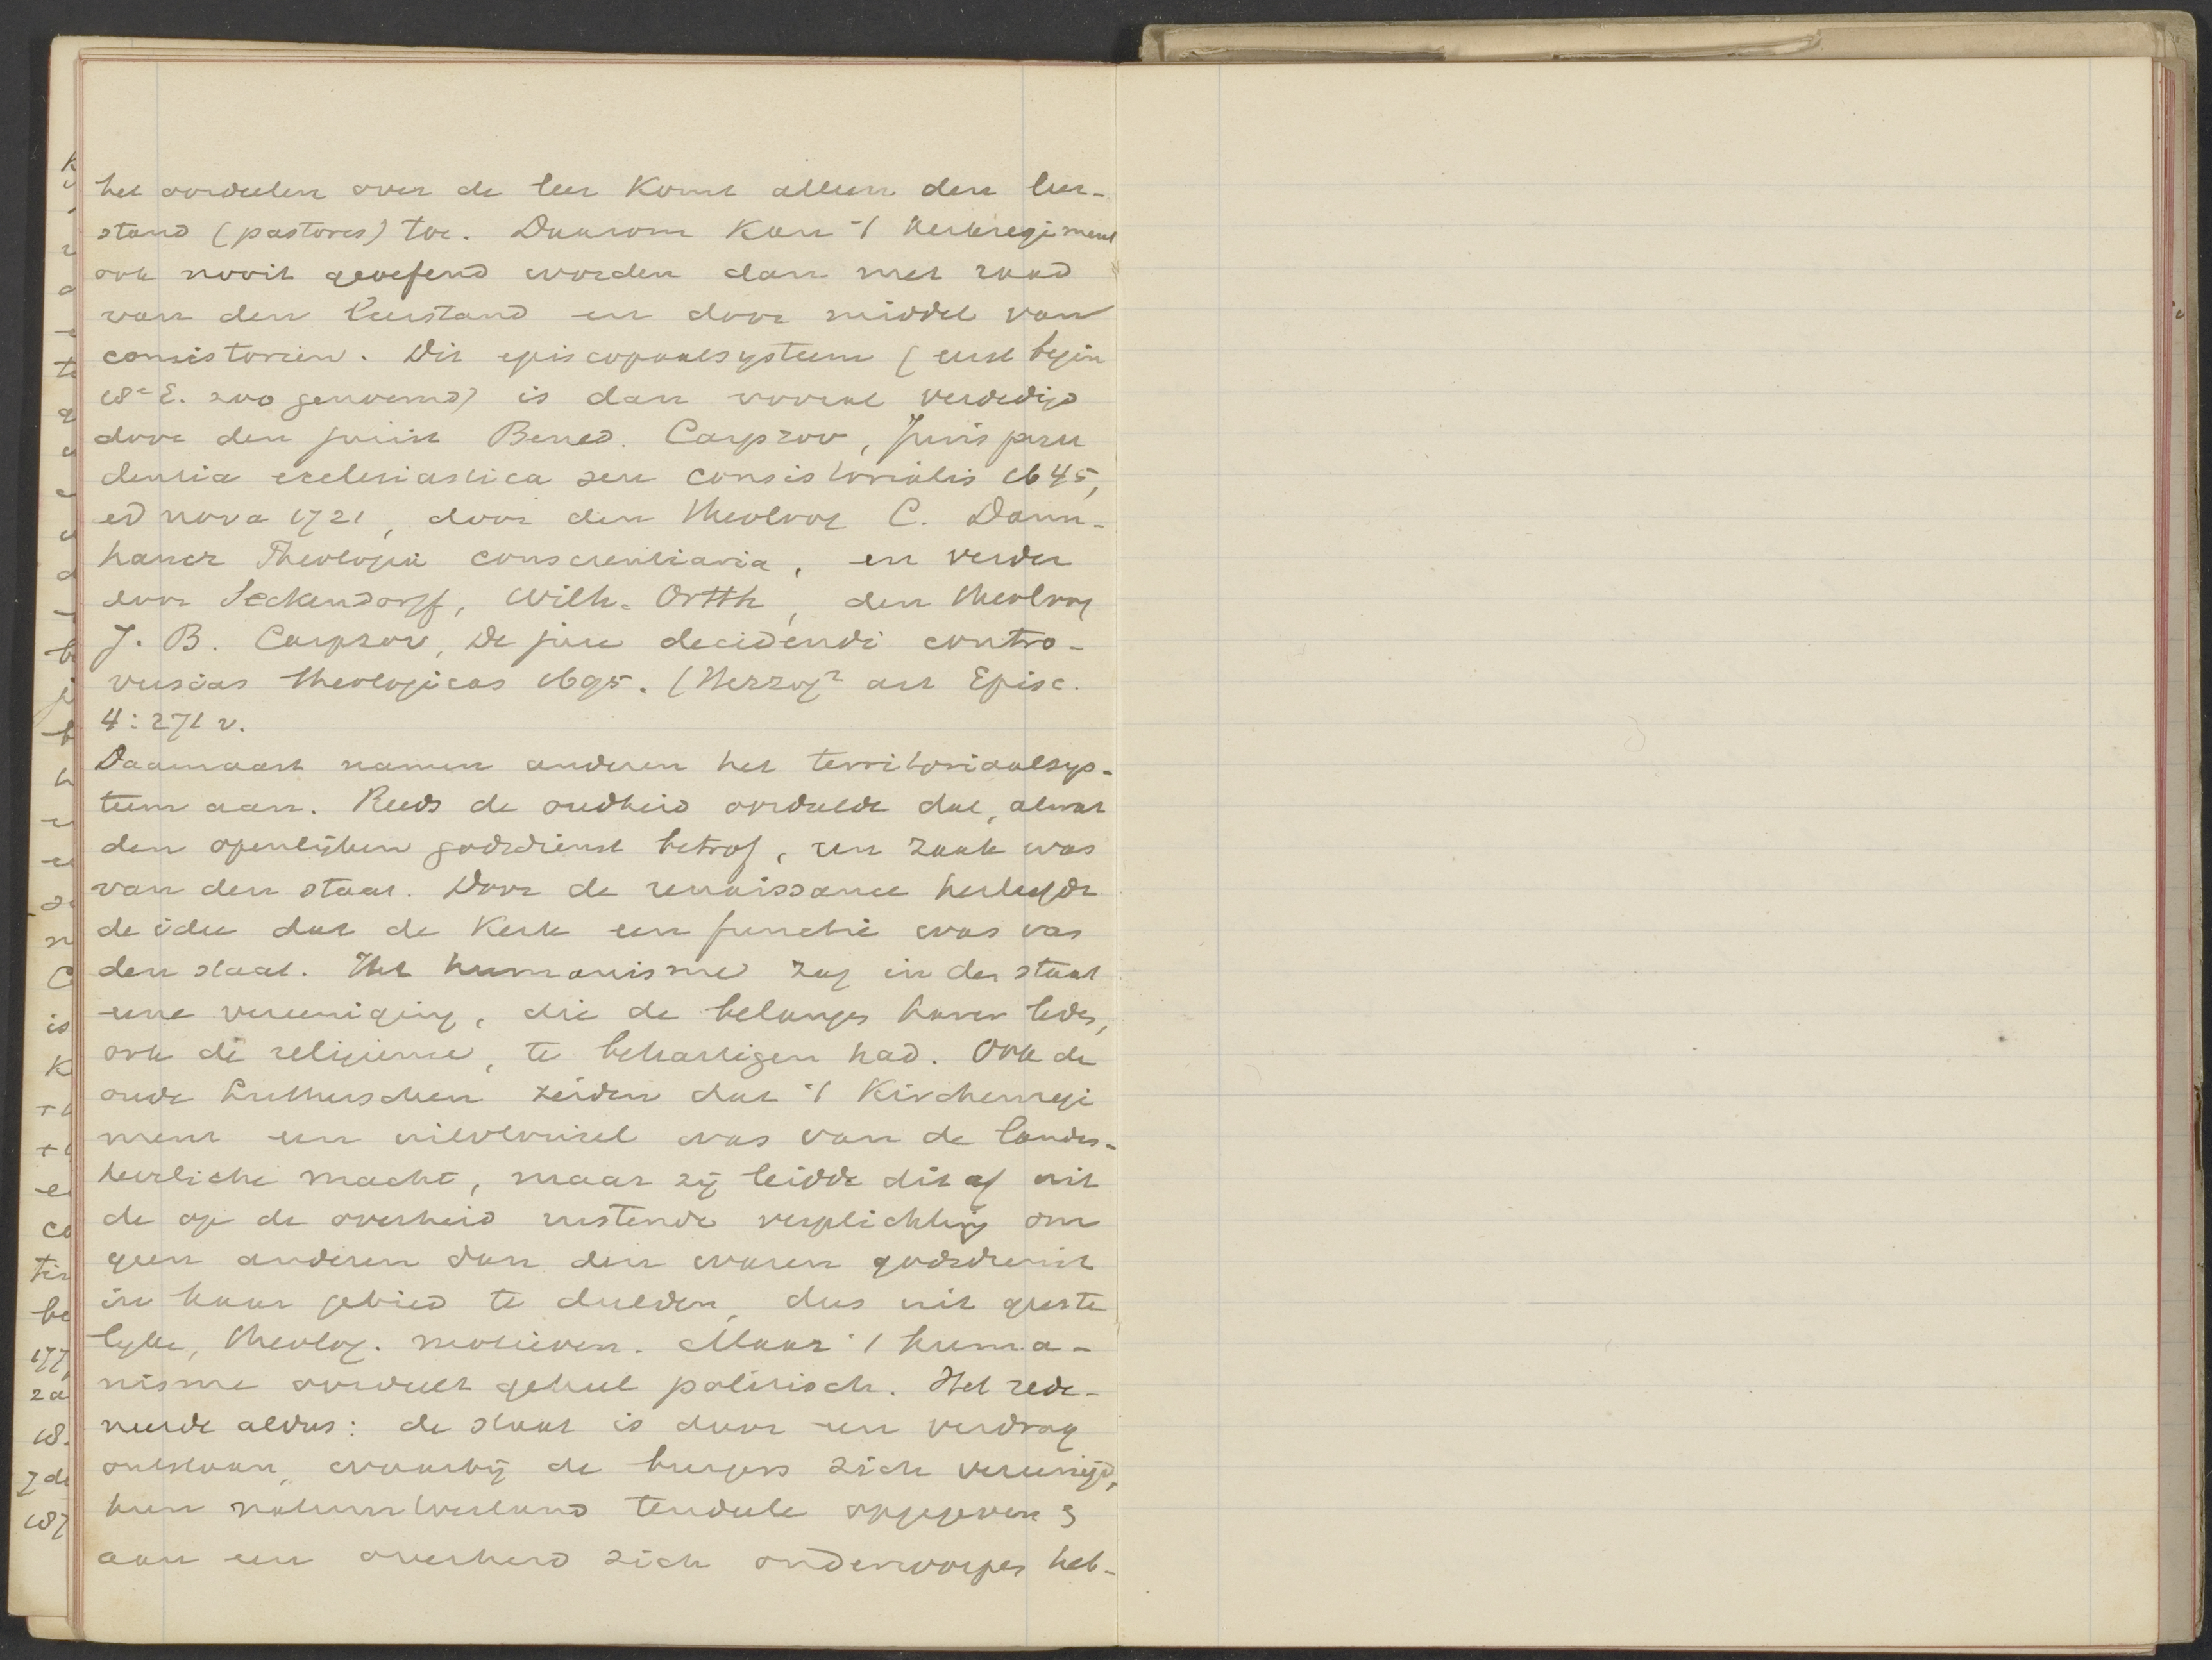 het oordeelen over de leer komt alleen den leer-
stand (pastores) toe. Daarom kan 't kerkregiment
ook nooit geoefend worden dan met raad
van den leerstand en door middel van
consistoriën. Dit episcopaalsysteem (eerst begin
18e E. zoo genoemd) is dan vooral verdedigd
door den jurist Bened. Carpzov, Jurispru
dentia ecclesiastica seu consistorialis 1645,
ed nova 1721, door den theoloog C. Dann-
hauer Theologia conscientiaria, en verder
door Seckendorff, Wilh. Ortth, den theoloog
J. B. Carpzov, De jure decidendi contro-
versias theologicas 1695. (Herzog² art Episc.
4:271 v.
Daarnaast namen anderen het territoriaalsys-
teem aan. Reeds de oudheid oordeelde dat, alwat
den openlijken godsdienst betrof, een zaak was
van den staat. Door de renaissance herleefde
de idee dat de kerk een functie was van
den staat. Het humanisme zag in den staat
eene vereeniging, die de belangen harer leden,
ook de religieuse, te behartigen had. Ook de
oude Lutherschen zeiden dat 't Kirchenregi
ment een uitvloeisel was van de landes-
herrliche macht, maar zij leidde dit af uit
de op de overheid rustende verplichting om
geen anderen dan den waren godsdienst
in haar gebied te dulden, dus uit geeste
lijke, theolog. motieven. Maar 't huma-
nisme oordeelt geheel politisch. Het rede-
neerde aldus: de staat is door een verdrag
ontstaan, waarbij de burgers zich vereenigd,
hun natuurtoestand tendeele opgegeven &
aan een overheid zich onderworpen heb-